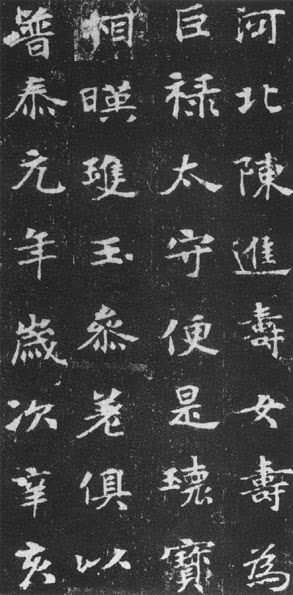 河北陳進壽女壽為
巨祿太守便是瓌寶
相暎瓘玉參差俱以
普泰元年歲次辛亥